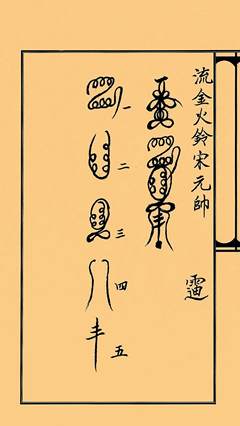 流金火鈴宋元帥
一
二
三
四
五